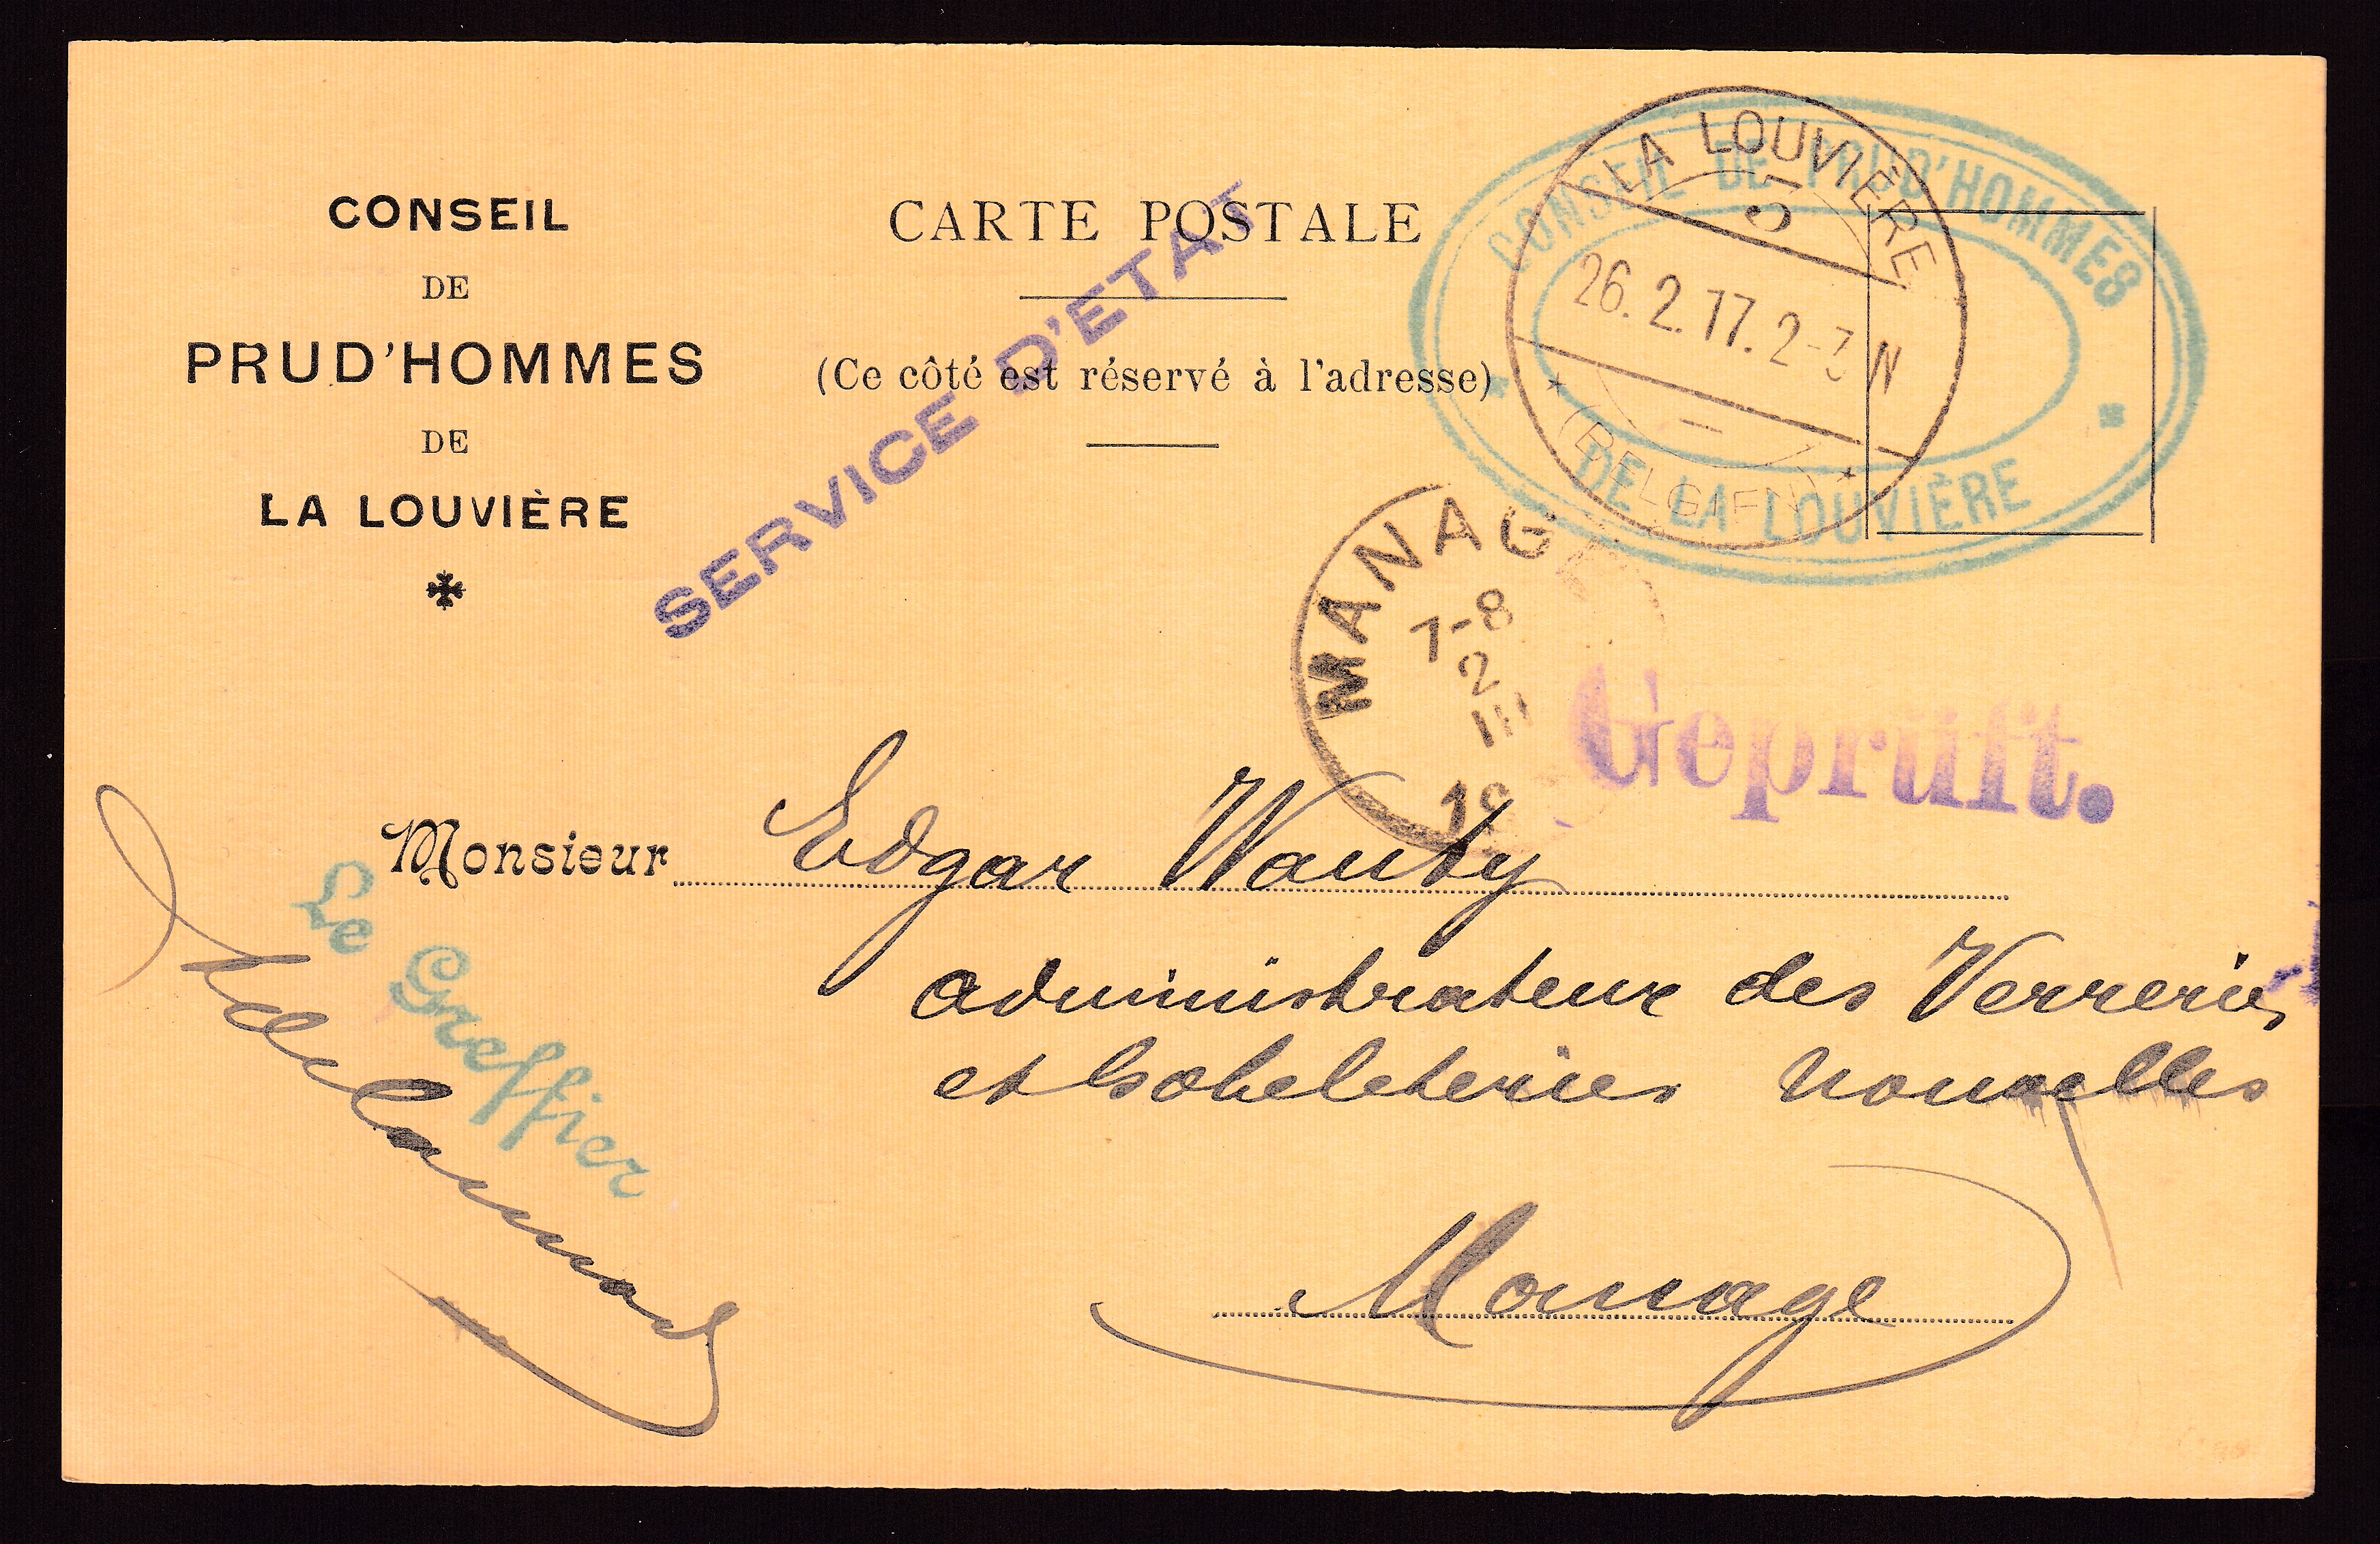 CONSEIL
DE
PRUD'HOMMES
DE
LA LOUVIÈRE
CARTE POSTALE
(Ce côté est réservé à l'adresse)
SERVICE D'ETAT
CONSEIL DE PRUD'HOMMES
DE LA LOUVIÈRE
LA LOUVIÈRE
26.2.17. 2-3 N
(BELGIEN)
MANAGE
7-8
2
III
Geprüft.
Monsieur Edgar Wauty
administrateur des Verreries
et Gobeleteries nouvelles
Manage
Le Greffier